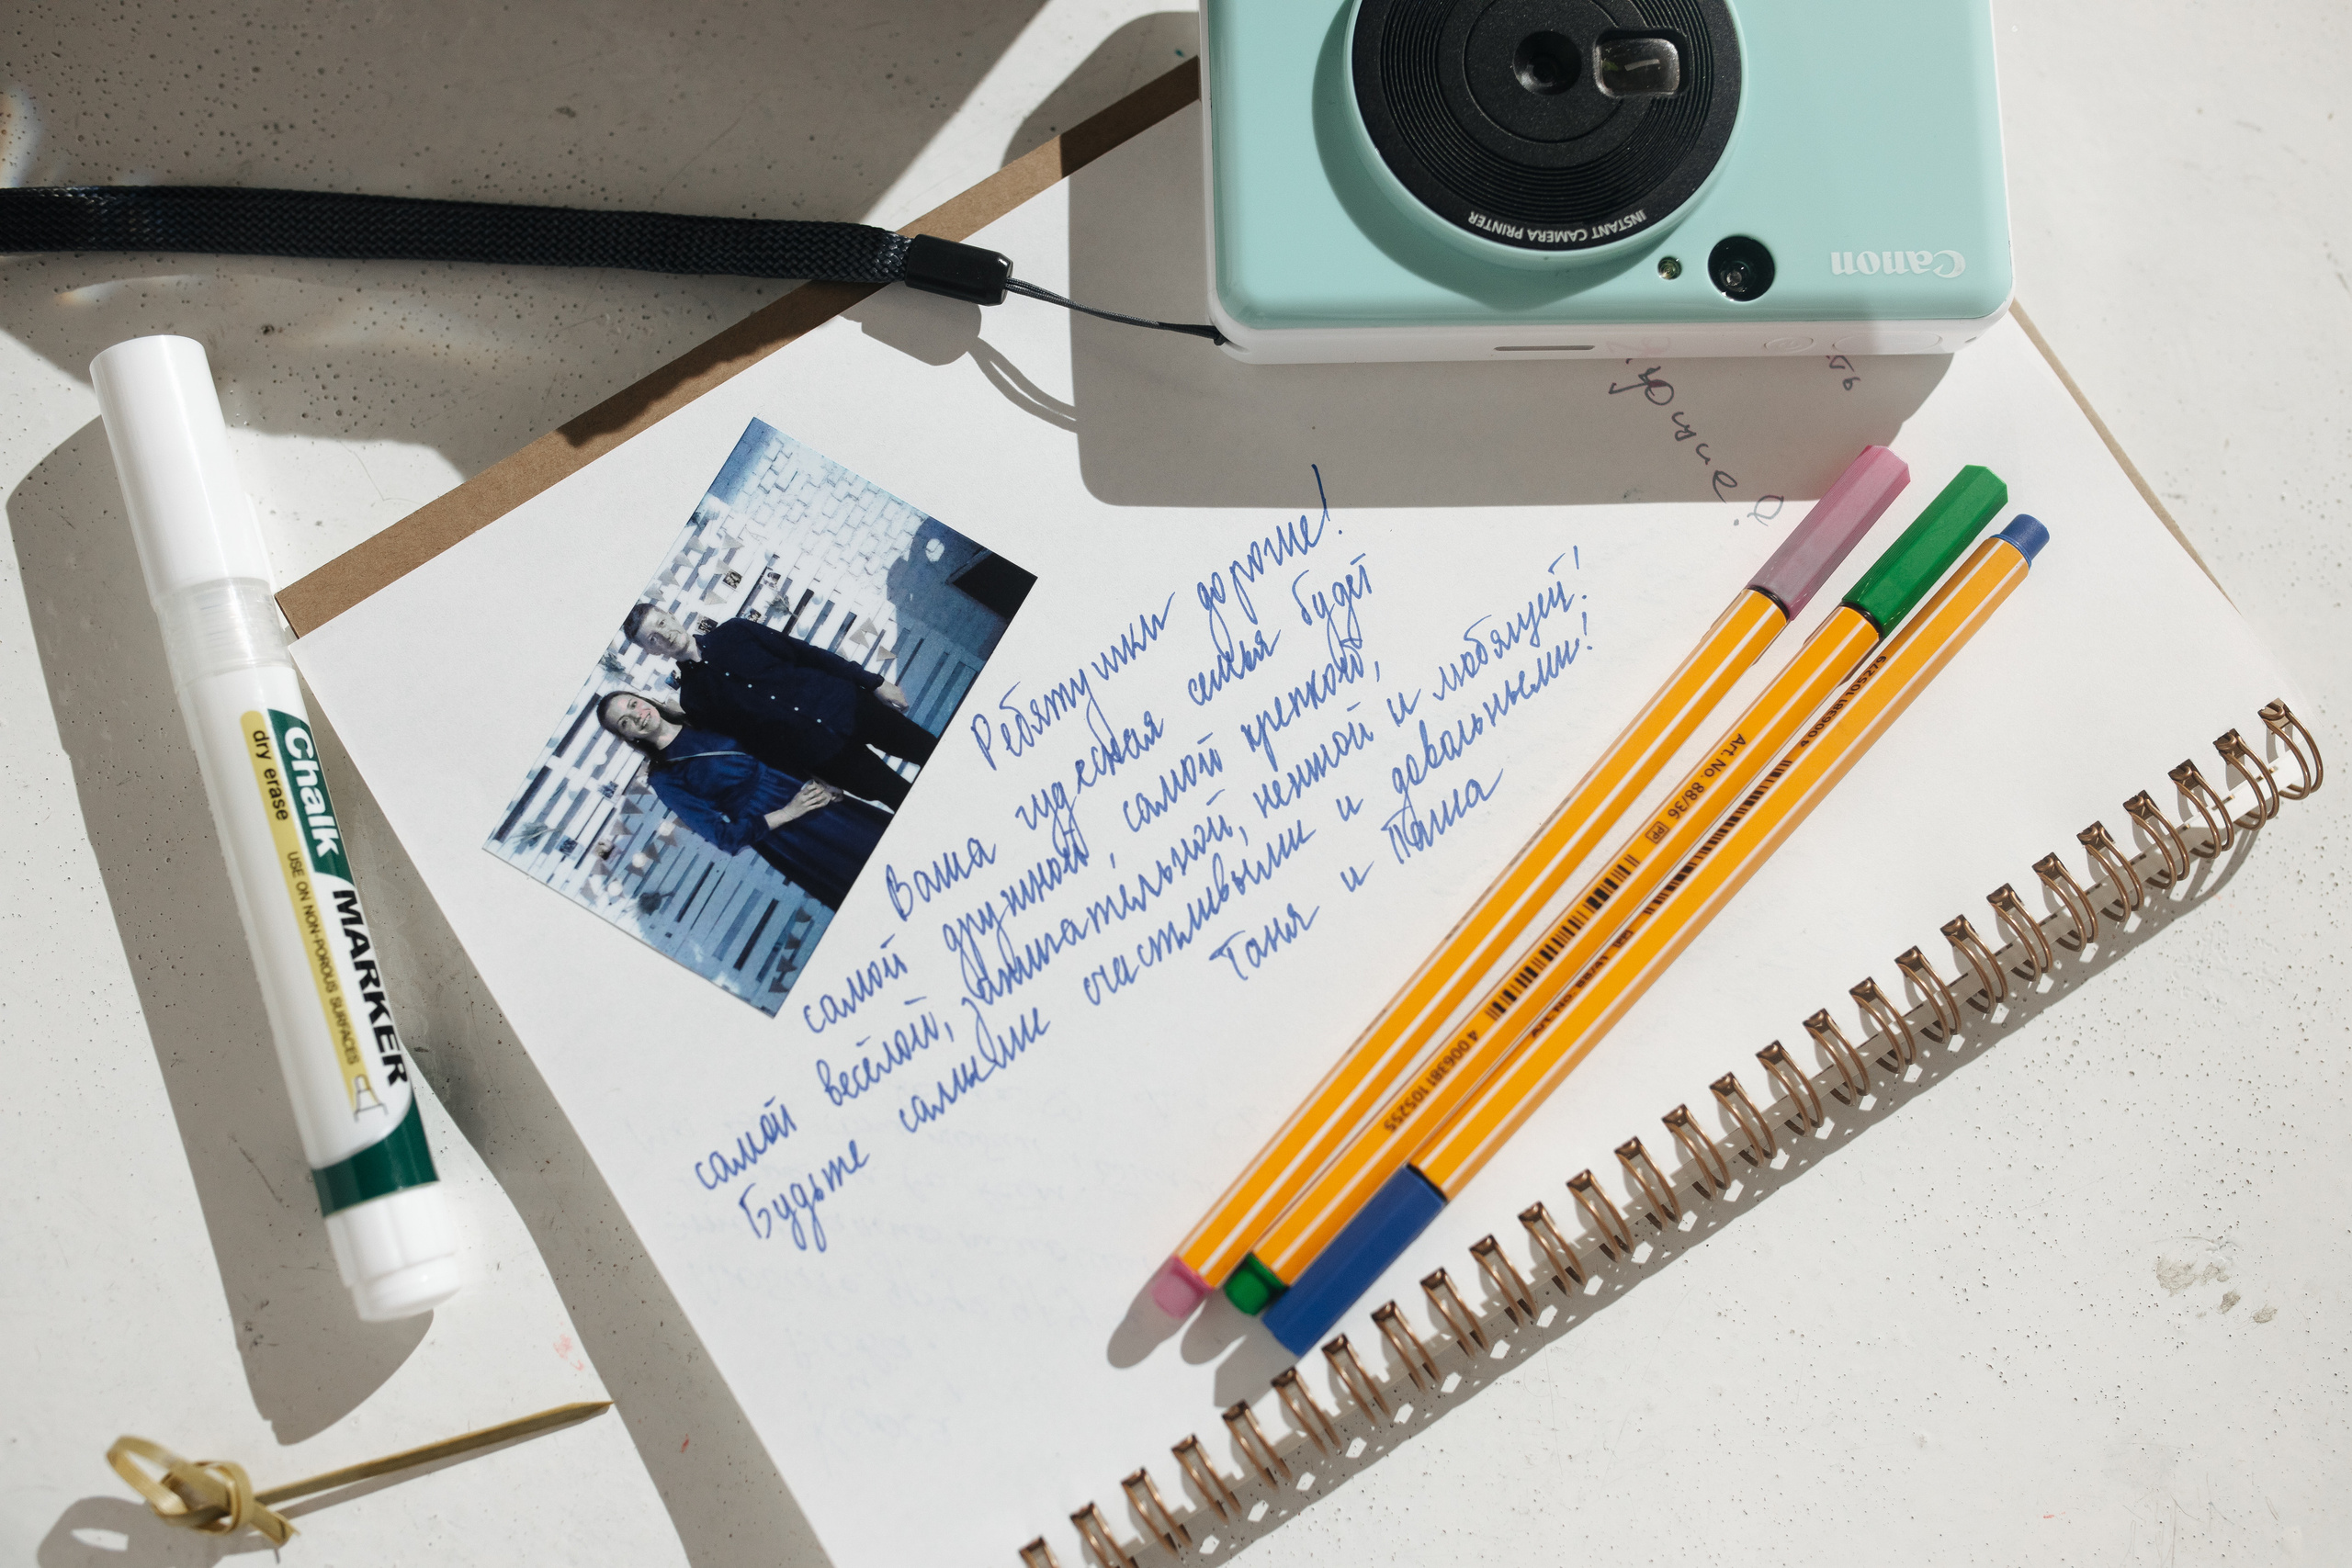 INSTANT CAMERA PRINTER
Canon
Ребятушки дорогие!
Ваша чудесная семья будет
самой дружной, самой крепкой,
самой весёлой, зажигательной, нежной и любящей!
Будьте самыми счастливыми и довольными!
Таня и Паша
Chalk MARKER
dry erase
USE ON NON-POROUS SURFACES
Art. No. 88/36 PP
4 006381 105255
4 006381 105279
Art. No. 88/41